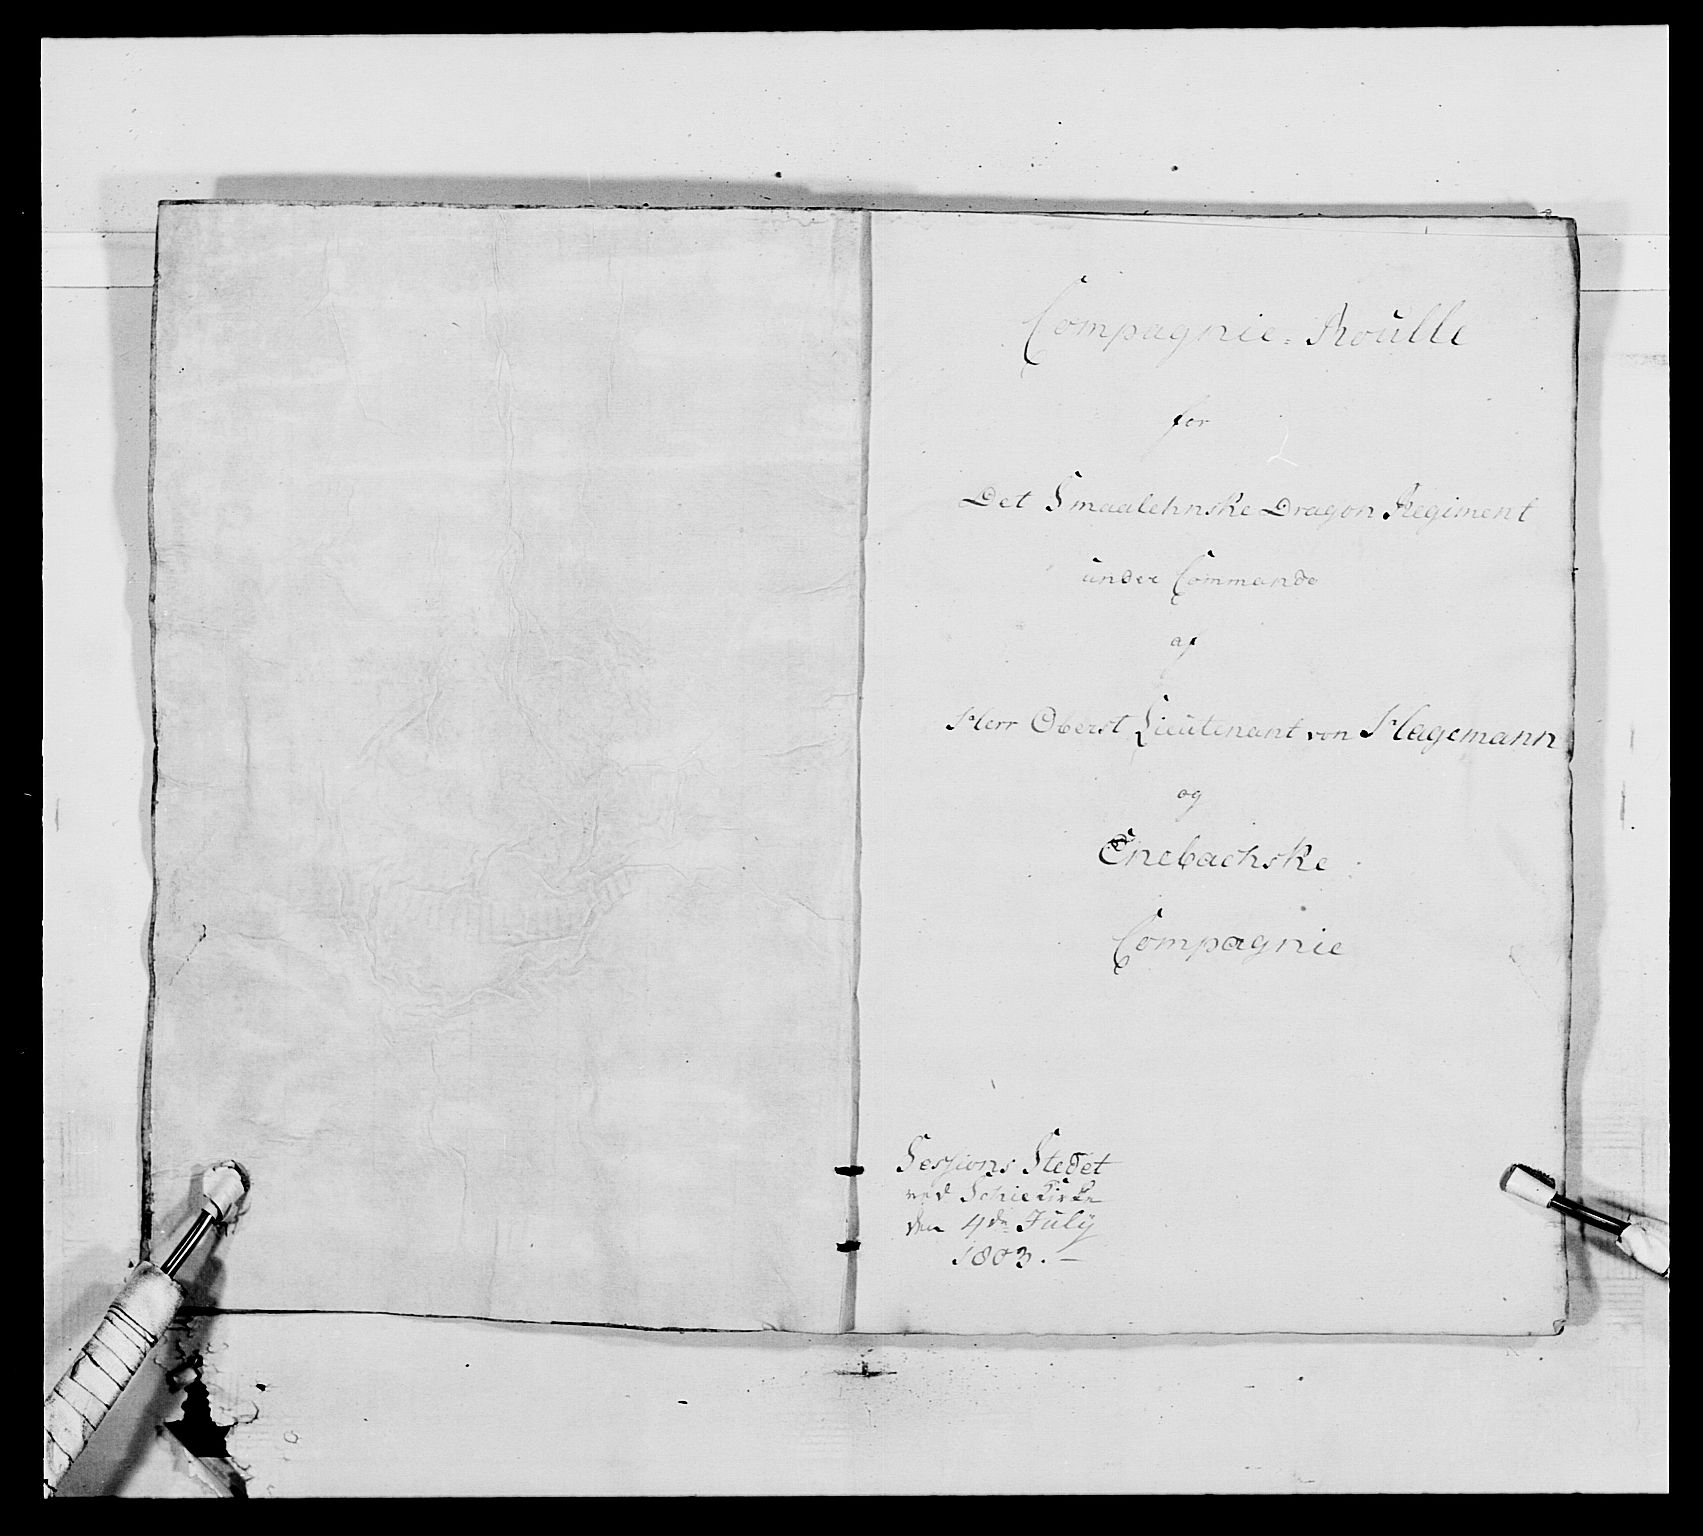 Compagnie-Roúlle
for
Det Smaalehnske Dragon Regiment
únder Commando
af
Herr Oberst Lieútenant von Hagemann
og
Enebachske
Compagnie
Sessions Stedet
ved Schie Kirke
den 4de Júlÿ
1803.–